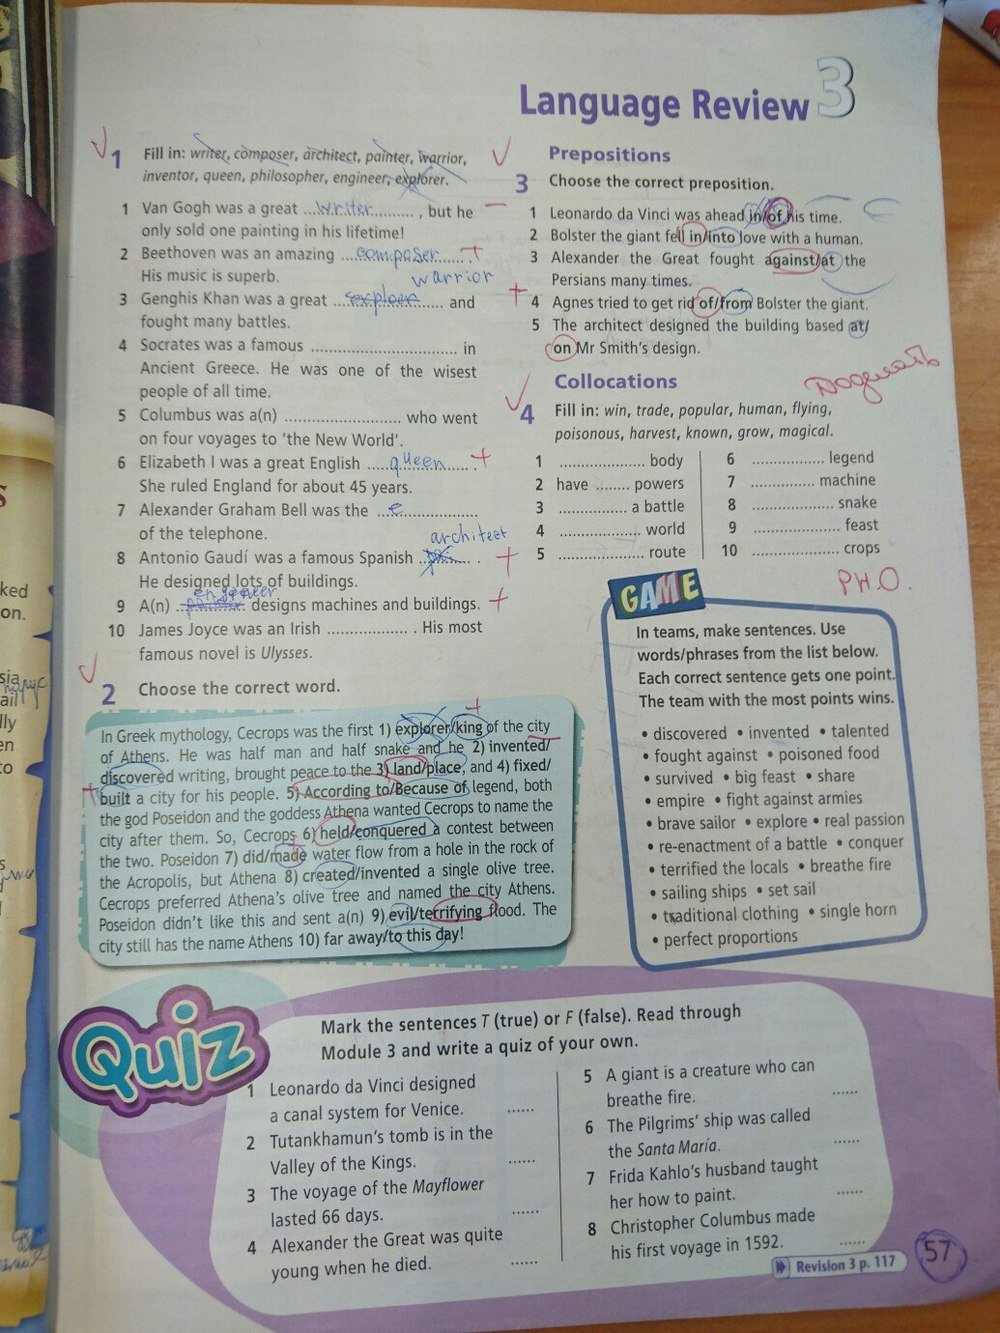 Language Review 3
1 Fill in: writer, composer, architect, painter, warrior,
inventor, queen, philosopher, engineer, explorer.
1 Van Gogh was a great ...writer........., but he
only sold one painting in his lifetime!
2 Beethoven was an amazing ...composer....... .
His music is superb.
warrior
3 Genghis Khan was a great .................... and
fought many battles.
4 Socrates was a famous ............................... in
Ancient Greece. He was one of the wisest
people of all time.
5 Columbus was a(n) ......................... who went
on four voyages to 'the New World'.
6 Elizabeth I was a great English .....queen....... .
She ruled England for about 45 years.
7 Alexander Graham Bell was the ...e...................
of the telephone.
architect
8 Antonio Gaudí was a famous Spanish ............ .
He designed lots of buildings.
engeneer
9 A(n) ............... designs machines and buildings.
10 James Joyce was an Irish ................. . His most
famous novel is Ulysses.
2 Choose the correct word.
In Greek mythology, Cecrops was the first 1) explorer/king of the city
of Athens. He was half man and half snake and he 2) invented/
discovered writing, brought peace to the 3) land/place, and 4) fixed/
built a city for his people. 5) According to/Because of legend, both
the god Poseidon and the goddess Athena wanted Cecrops to name the
city after them. So, Cecrops 6) held/conquered a contest between
the two. Poseidon 7) did/made water flow from a hole in the rock of
the Acropolis, but Athena 8) created/invented a single olive tree.
Cecrops preferred Athena's olive tree and named the city Athens.
Poseidon didn't like this and sent a(n) 9) evil/terrifying flood. The
city still has the name Athens 10) far away/to this day!
Prepositions
3 Choose the correct preposition.
1 Leonardo da Vinci was ahead in/of his time.
2 Bolster the giant fell in/into love with a human.
3 Alexander the Great fought against/at the
Persians many times.
4 Agnes tried to get rid of/from Bolster the giant.
5 The architect designed the building based at/
on Mr Smith's design.
Collocations
4 Fill in: win, trade, popular, human, flying,
poisonous, harvest, known, grow, magical.
1 .................... body
2 have ........ powers
3 ................ a battle
4 ................... world
5 .................... route
6 ................. legend
7 ............... machine
8 ................... snake
9 .................... feast
10 .................... crops
GAME
In teams, make sentences. Use
words/phrases from the list below.
Each correct sentence gets one point.
The team with the most points wins.
• discovered • invented • talented
• fought against • poisoned food
• survived • big feast • share
• empire • fight against armies
• brave sailor • explore • real passion
• re-enactment of a battle • conquer
• terrified the locals • breathe fire
• sailing ships • set sail
• traditional clothing • single horn
• perfect proportions
Quiz
Mark the sentences T (true) or F (false). Read through
Module 3 and write a quiz of your own.
1 Leonardo da Vinci designed
a canal system for Venice. ......
2 Tutankhamun's tomb is in the
Valley of the Kings. ......
3 The voyage of the Mayflower
lasted 66 days. ......
4 Alexander the Great was quite
young when he died. ......
5 A giant is a creature who can
breathe fire. ......
6 The Pilgrims' ship was called
the Santa María. ......
7 Frida Kahlo's husband taught
her how to paint. ......
8 Christopher Columbus made
his first voyage in 1592. ......
Revision 3 p. 117
57